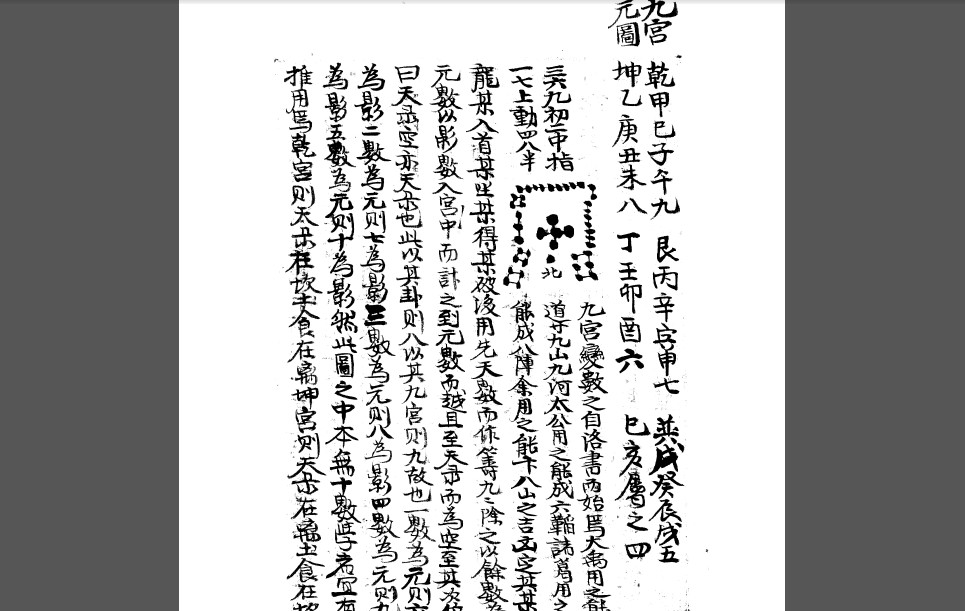 九宮
元圖
乾甲己子午九 艮丙辛寅申七 戊癸辰戌五
坤乙庚丑未八 丁壬卯酉六 巳亥屬之四
九宮變數之自洛書而始焉大禹用之能
三六九初一中指
道導九山九河太公用之能成六韜諸葛用之
一七上動四八半
北
能成八陣余用之能卞八山之吉凶定其某
龍某入首某坐某得某破後用先天數而作等九二除之以餘數為
元數以影數入宮中而計之到元數而越且至天彔而為空至其次位
曰天彔空亦天彔也此以其卦則八以其九宮則九故也一數為元則六
為影二數為元則七為影三數為元則八為影四數為元則九
為影五數為元則十為影然此圖之中本無十數學者宜有
推用焉乾宮則天彔在坎土食在离坤宮則天彔在离土食在坎